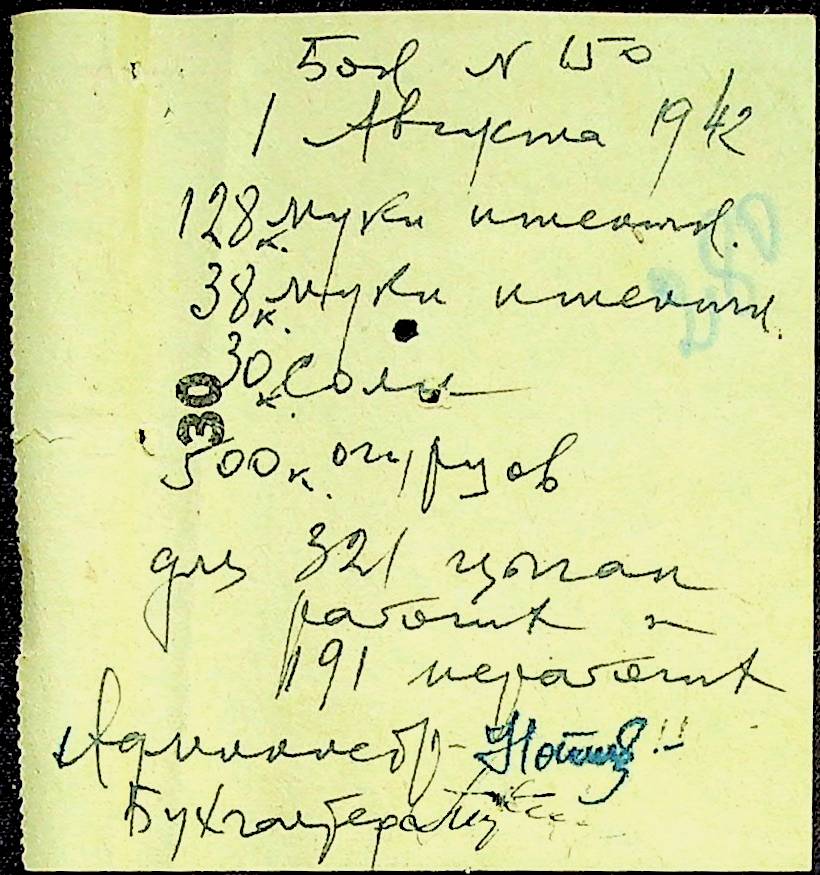 Бон N 150
1 Августа 1942
128 к. муки пшеничн.
38 к. муки пшеничн.
30 к. соли
30
500 к. огурцов
для 321 цыган
рабочих и
191 нерабочих
Администр-
Бухгалтера